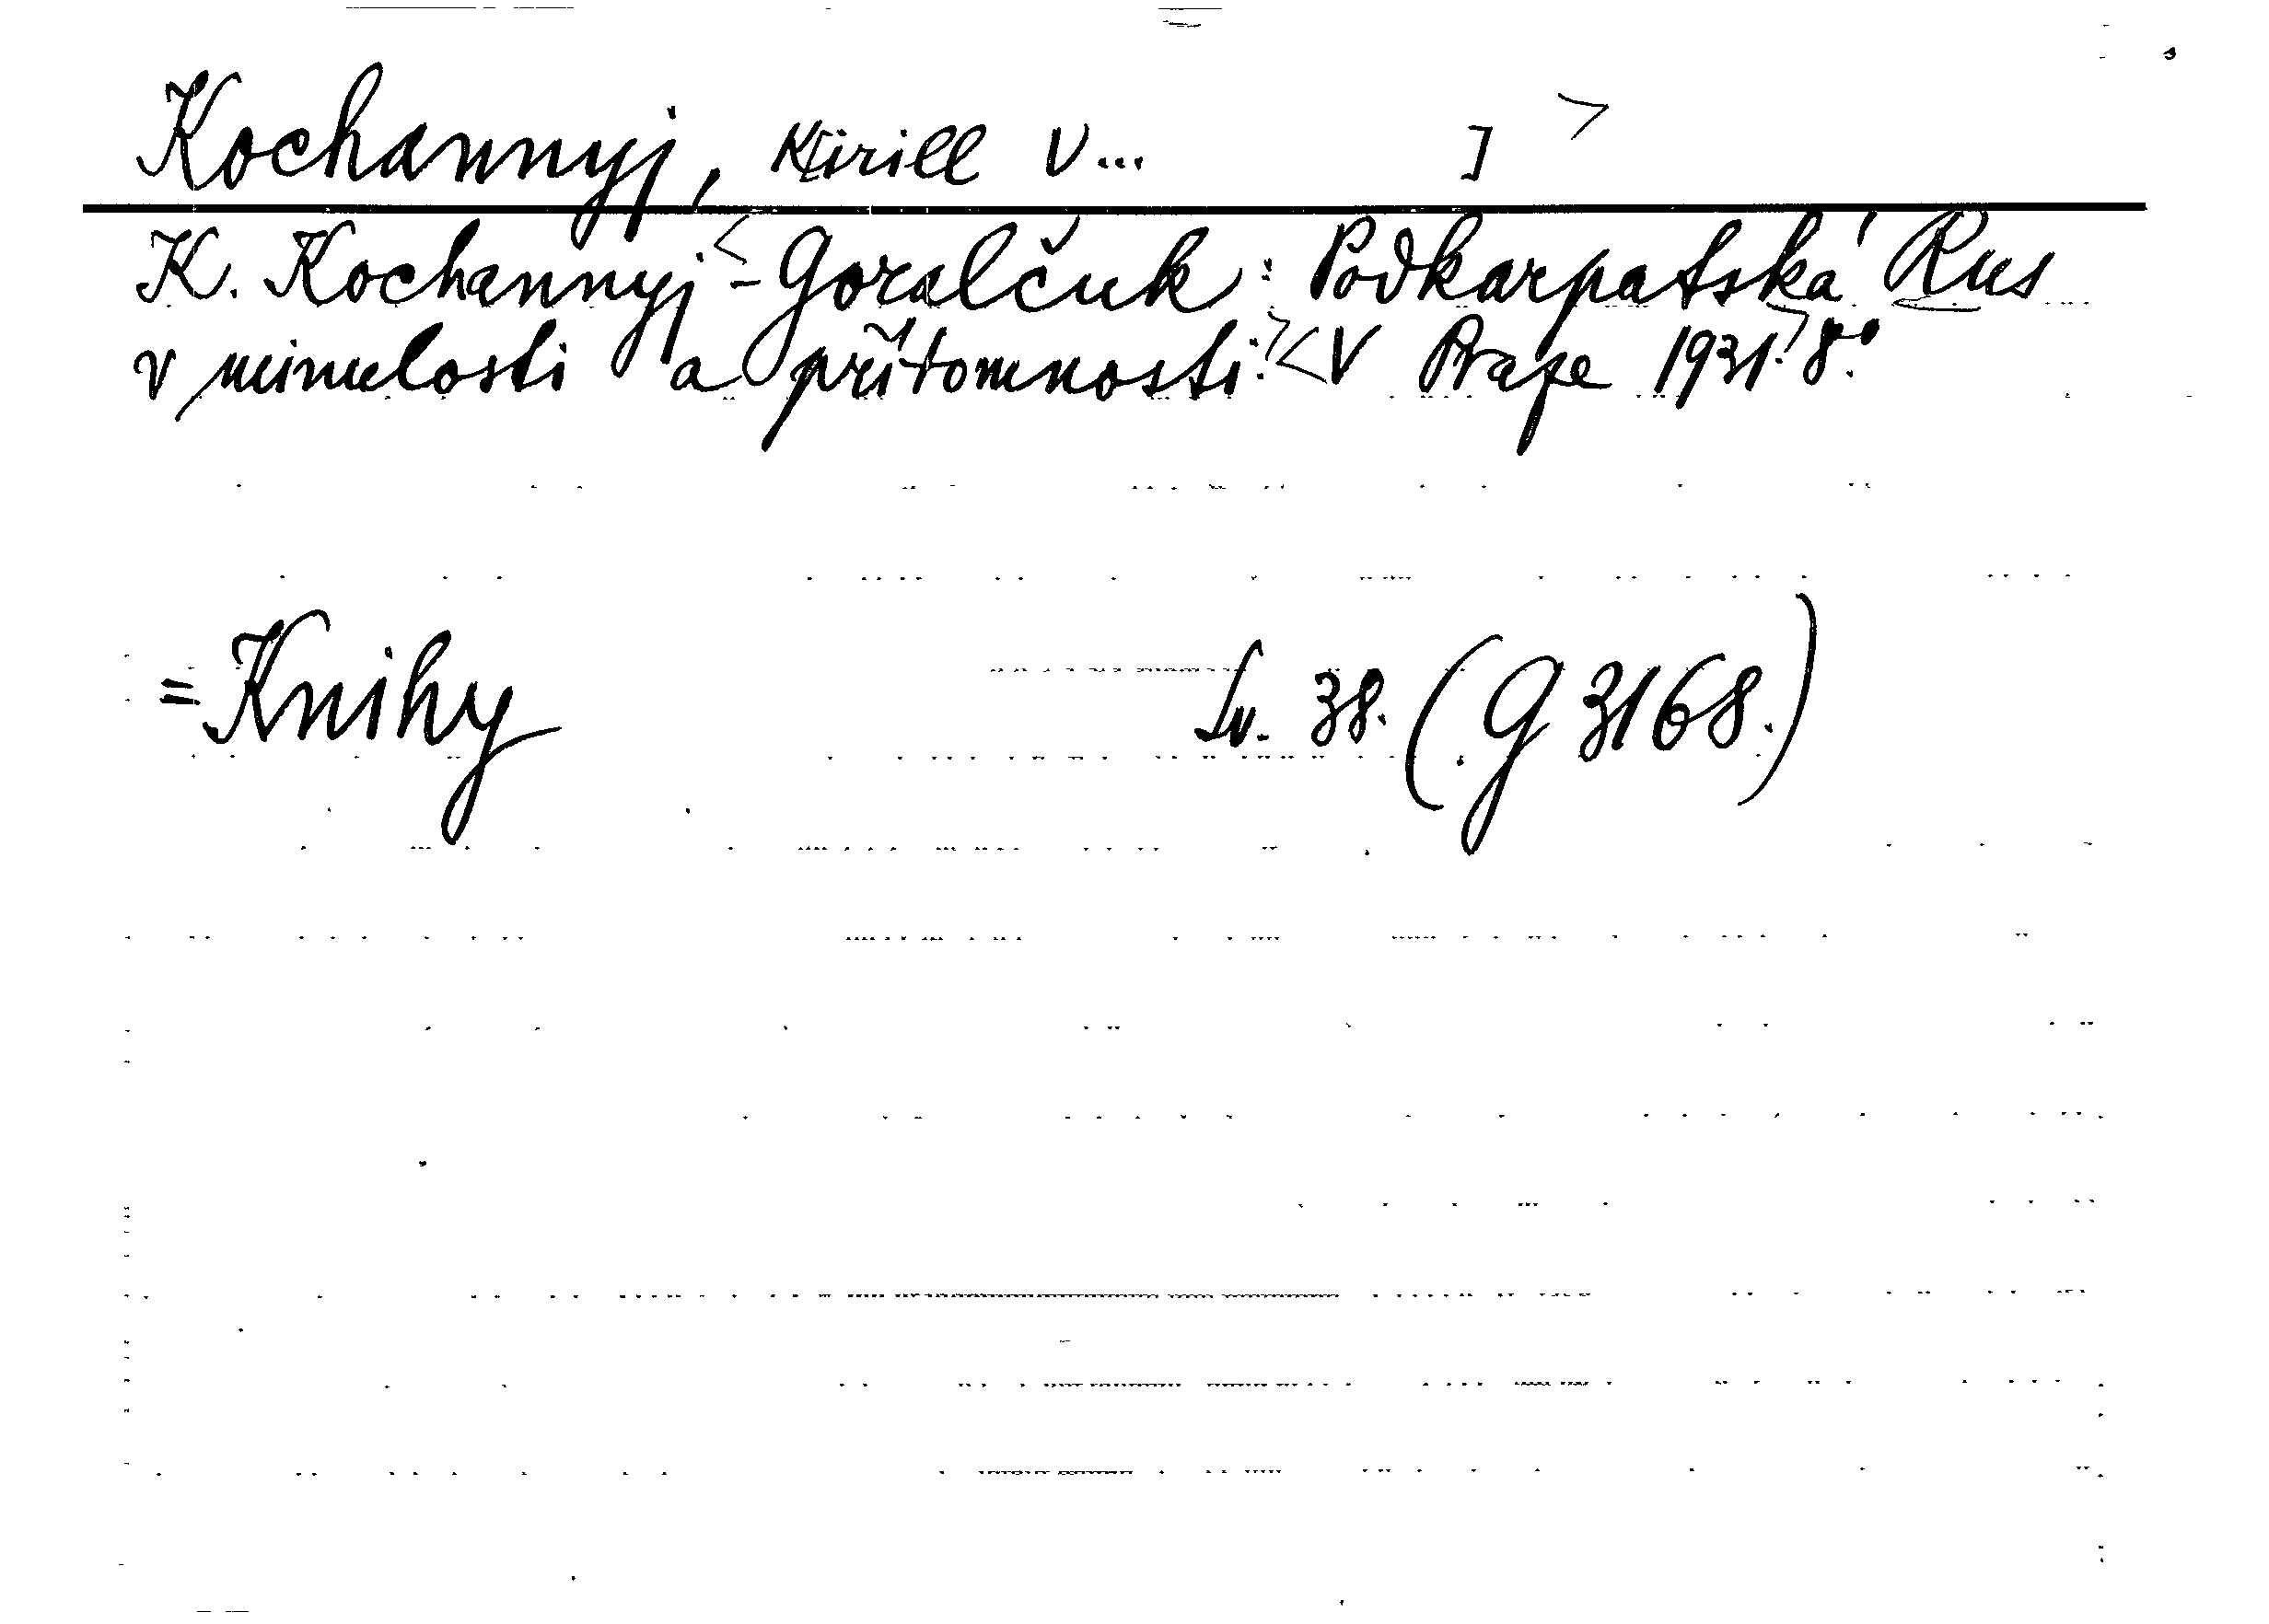 Kochannyj, K[irill V... ] >
K. Kochannyj <-Goralčuk: Podkarpatská Rus
v minulosti a přítomnosti.> <V Praze 1931.> 8°.
=Knihy Sv. 38. (G 3168.)